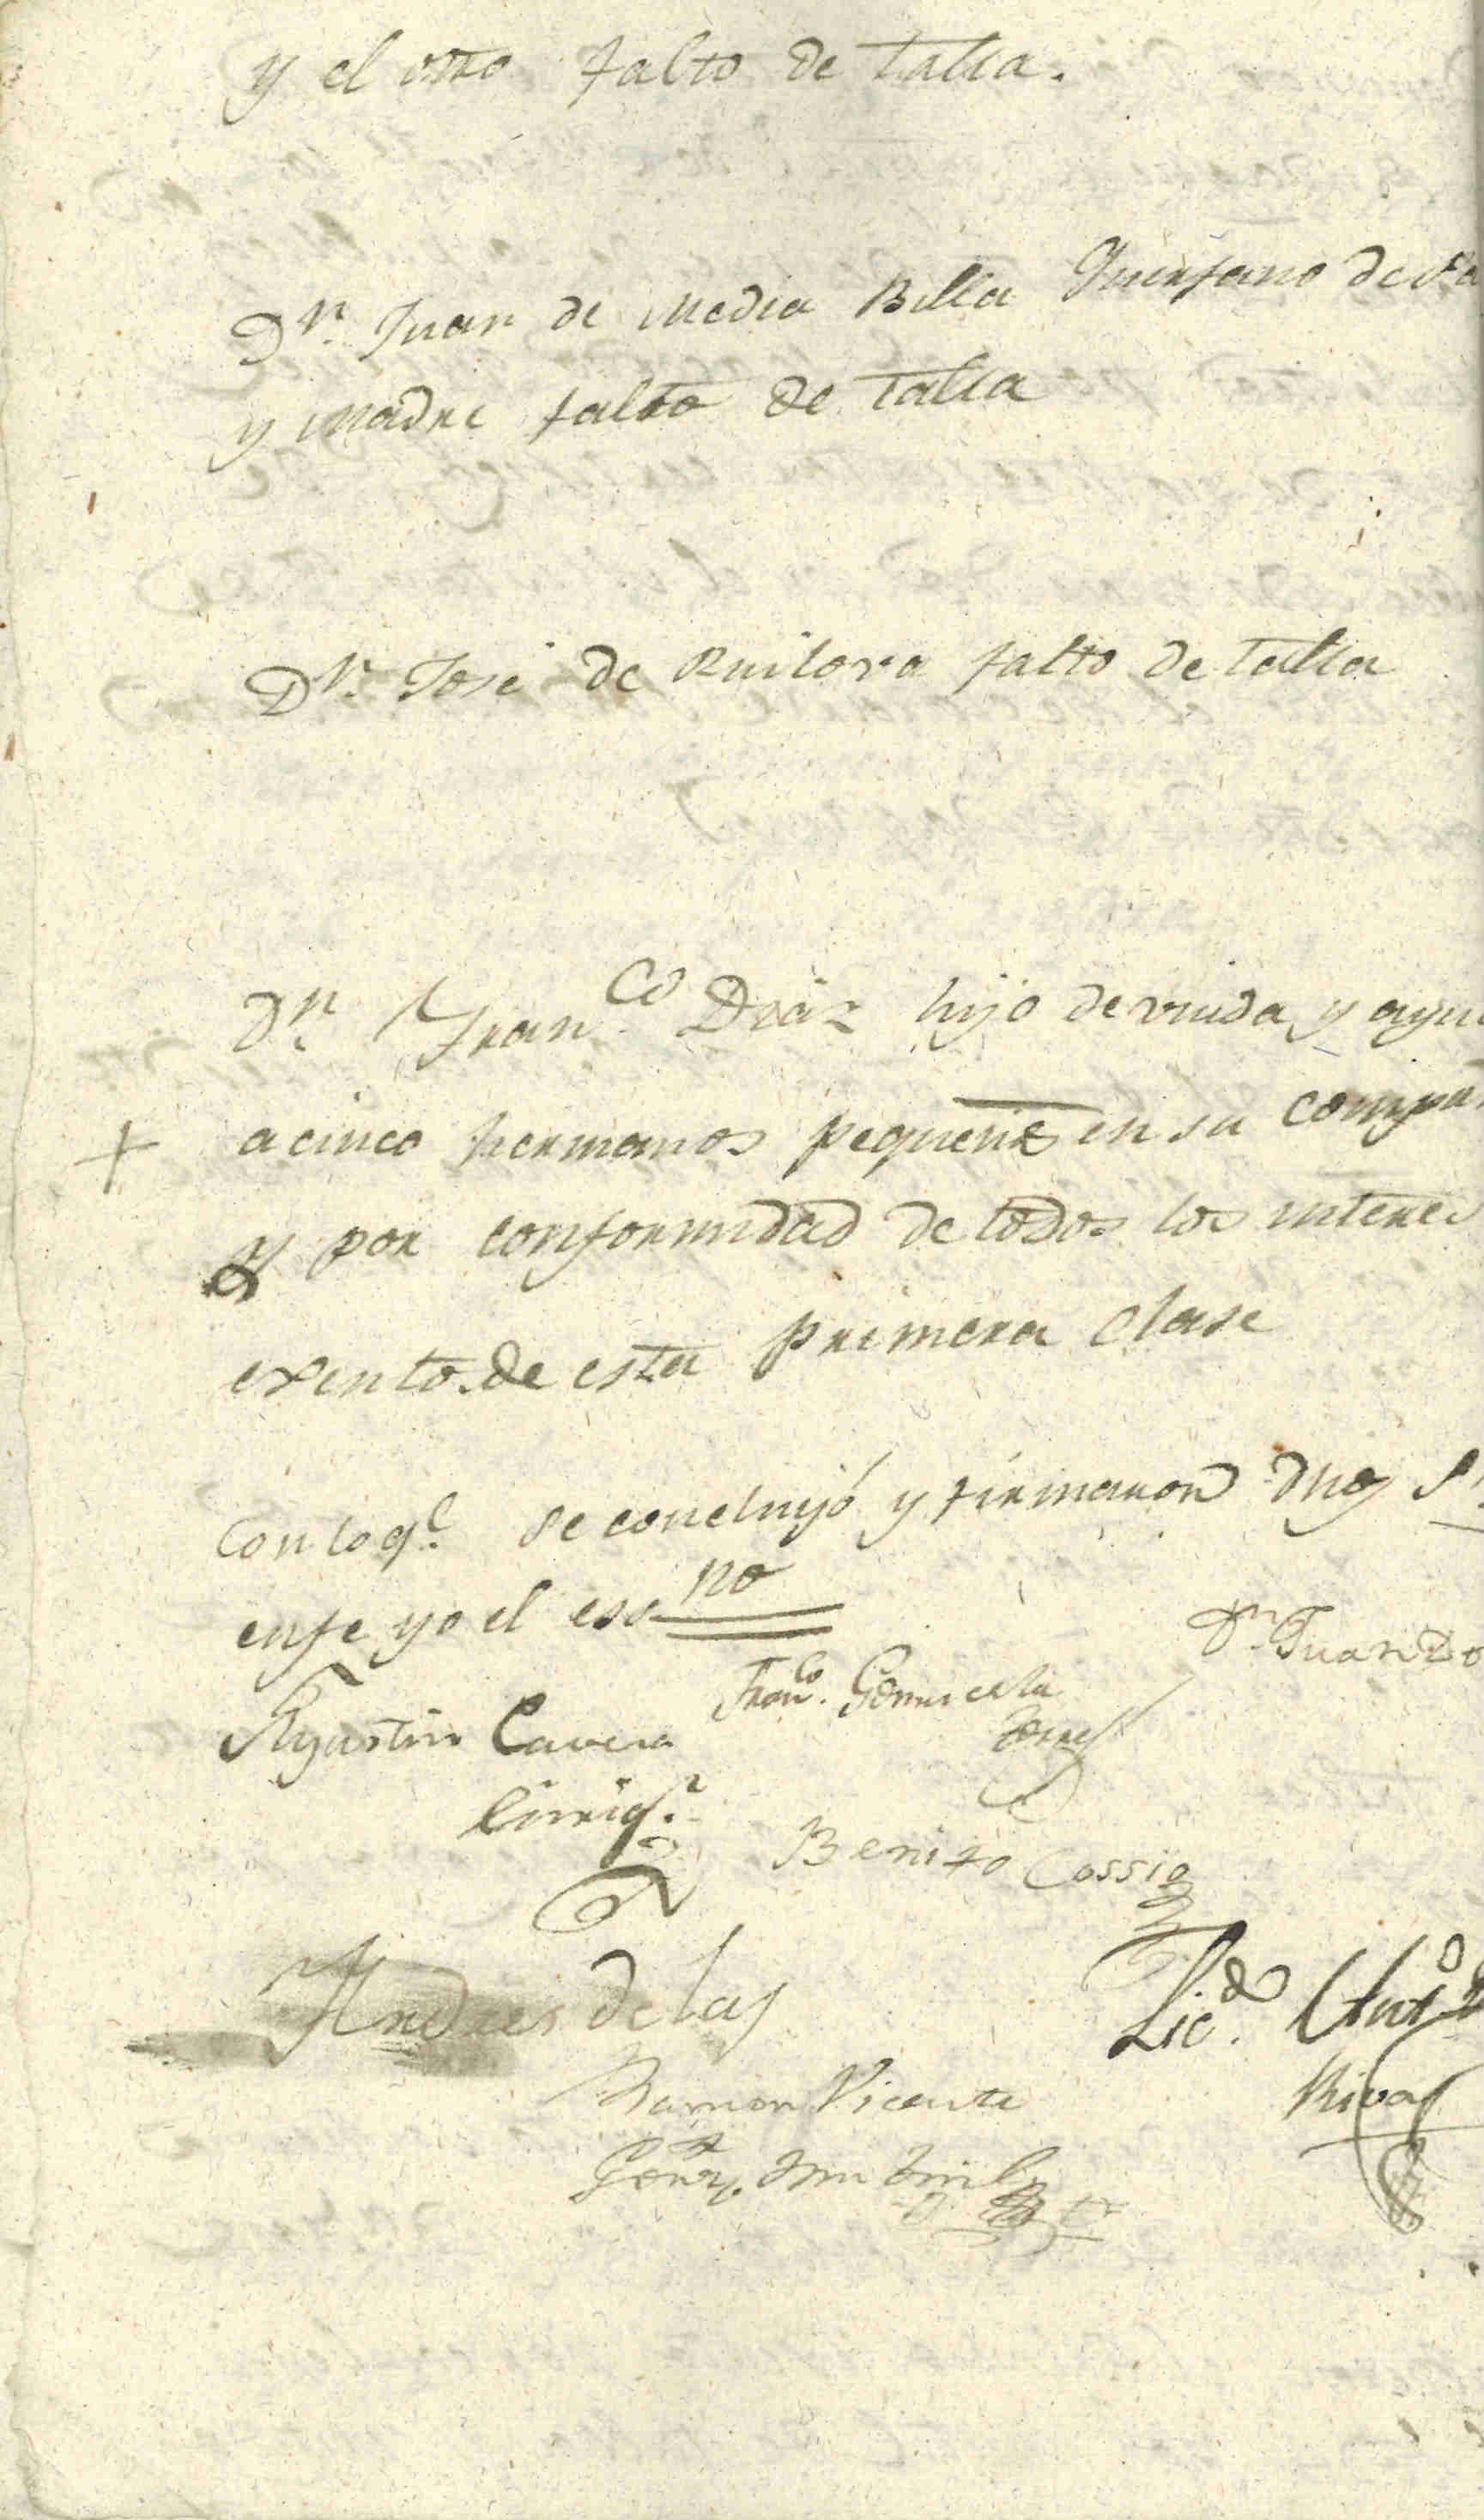 y el otro falto de talla.
Dn. Juan de Media Billa Huerfano de Pa
y Madre falto de talla
Dn. José de Ruilova falto de talla
Dn Franco. Diaz hijo de viuda y ayu
a cinco hermanos pequeños en su compa
y por conformidad de todos los interes
exento de esta primera clase
Con lo qe. se concluyó y firmaron dhos S
en fe yo el essno
Dn Juan
Agustin Cavera
Franco.
Benito Cossio
Andres de las
Licdo. Anto
Rivas
Ramon Vicente